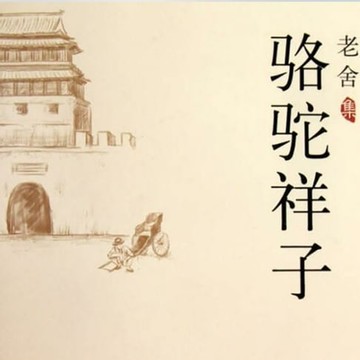 骆驼祥子
老舍
集